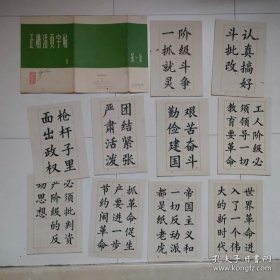 正楷活页字帖
第一集
阶级斗争
一抓就灵
认真搞好
斗批改
枪杆子里
面出政权
团结紧张
严肃活泼
艰苦奋斗
勤俭建国
工人阶级必
须领导一切
教育要革命
必须批判资
产阶级的反
动思想
抓革命促生
产要进一步
节约闹革命
帝国主义和
一切反动派
都是纸老虎
世界革命进
入了一个伟
大的新时代